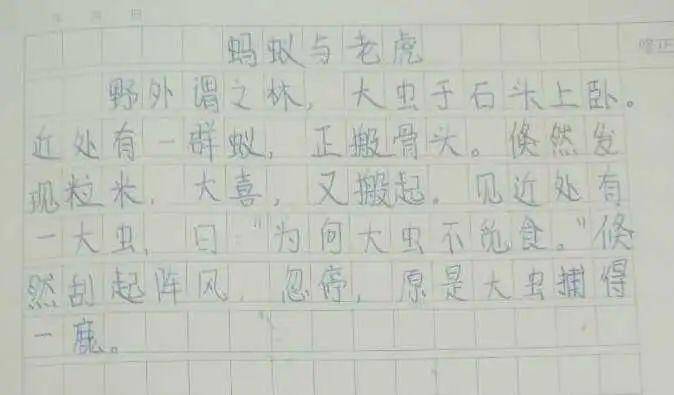 年 月 日
蚂蚁与老虎
野外谓之林，大虫于石头上卧。
近处有一群蚁，正搬骨头。倏然发
现粒米，大喜，又搬起。见近处有
一大虫，曰“为何大虫不觅食。”倏
然刮起阵风，忽停，原是大虫捕得
一鹿。